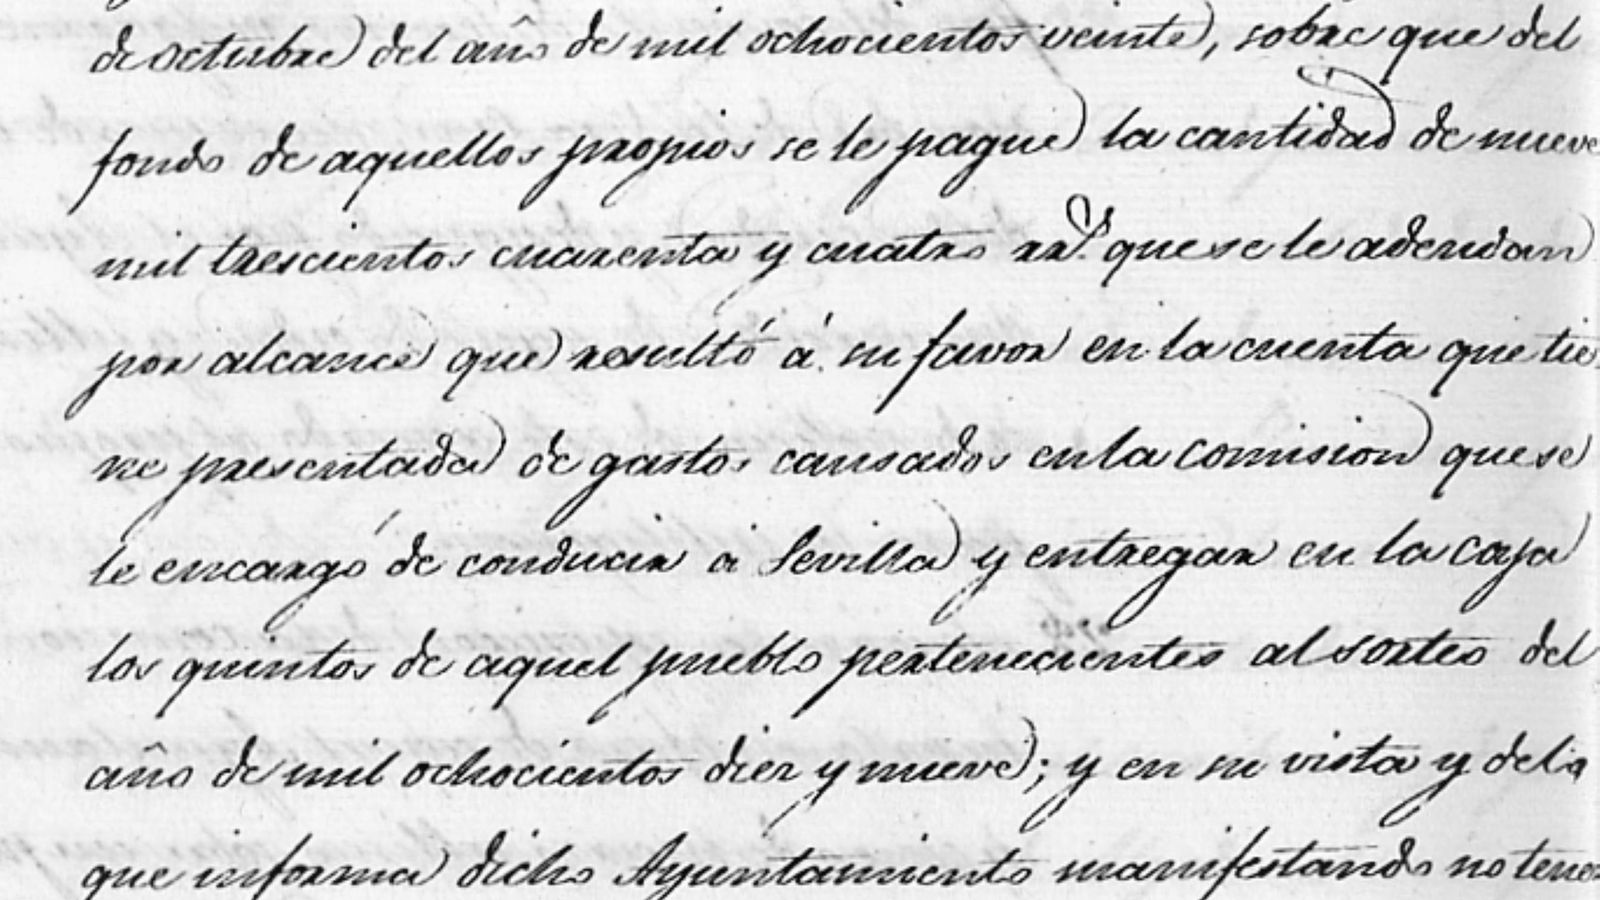 de octubre del año de mil ochocientos veinte, sobre que del
fondo de aquellos propios se le pague la cantidad de nueve
mil trescientos cuarenta y cuatro rr.^s que se le adeudan
por alcance que resultó á su favor en la cuenta que tie
ne presentada de gastos causados en la comision que se
le encargó de conducir a Sevilla y entregar en la caja
los quintos de aquel pueblo pertenecientes al sorteo del
año de mil ochocientos diez y nueve; y en su vista y de lo
que informa dicho Ayuntamiento manifestando no tener